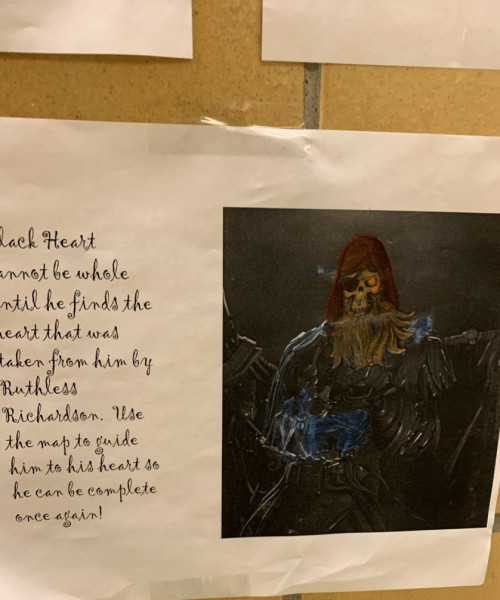 lack Heart
annot be whole
ntil he finds the
heart that was
taken from him by
Ruthless
Richardson. Use
the map to guide
him to his heart so
he can be complete
once again!